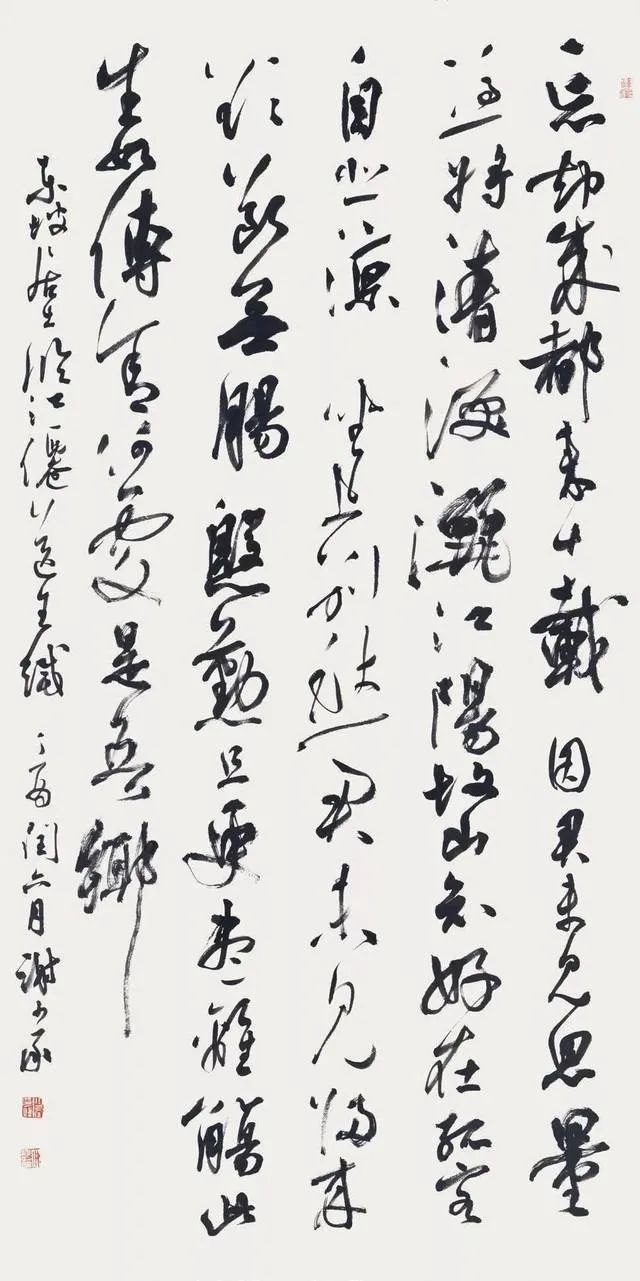 忘却成都來十載因君未免思量
憑將清淚灑江陽故山知好在孤客
自悲涼坐上別愁君未見歸來
欲斷無腸慇懃且更盡離觴此
生如傳舍何處是吾鄉
東坡居士臨江僊送王緘丁酉閏六月謝少承